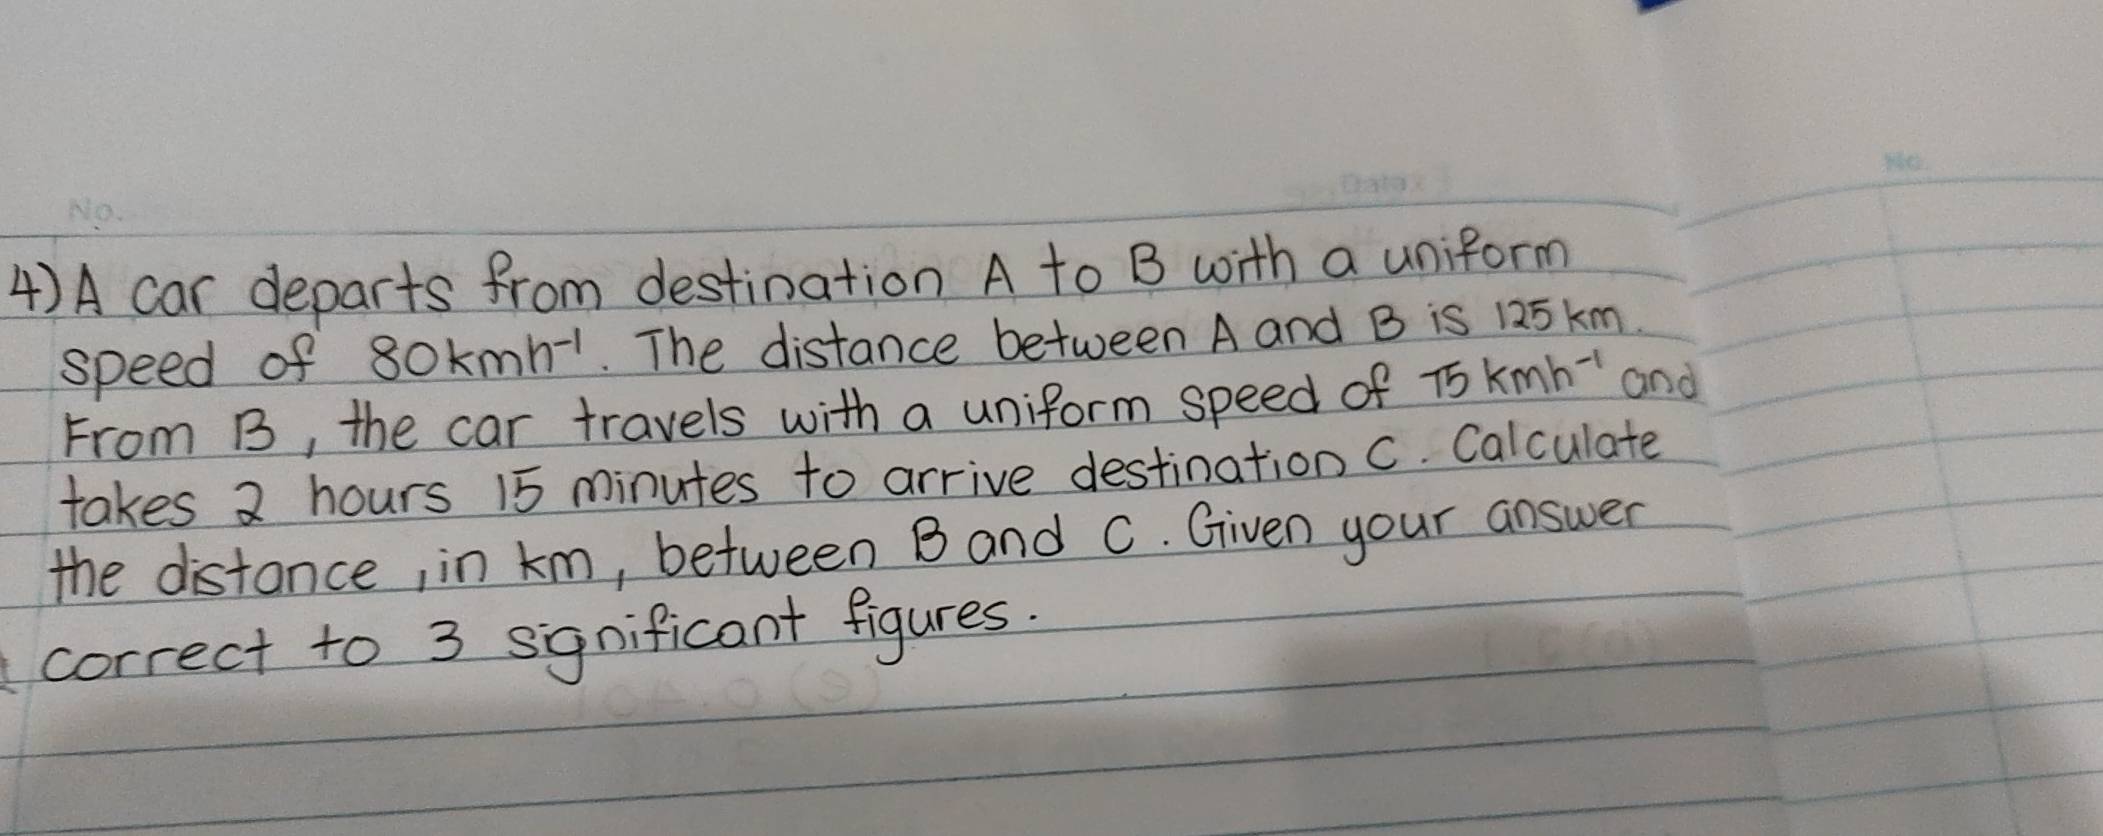 No.
Date
No
4) A car departs from destination A to B with a uniform
speed of 80kmh⁻¹. The distance between A and B is 125km.
From B, the car travels with a uniform speed of 75kmh⁻¹ and
takes 2 hours 15 minutes to arrive destination C. Calculate
the distance, in km, between B and C. Given your answer
correct to 3 significant figures.